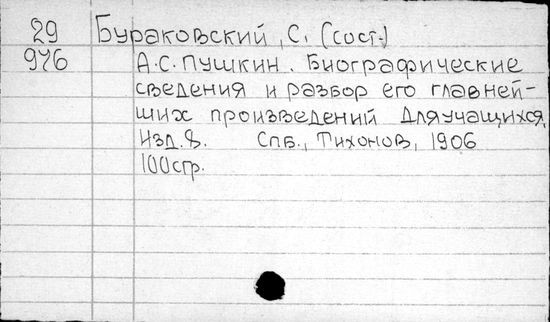 29 Бураковский, С. (сост.)
976 А.С. Пушкин. Биографические
сведения и разбор его главней-
ших произведений Для учащихся.
Изд. 8. Спб., Тихонов, 1906
100стр.